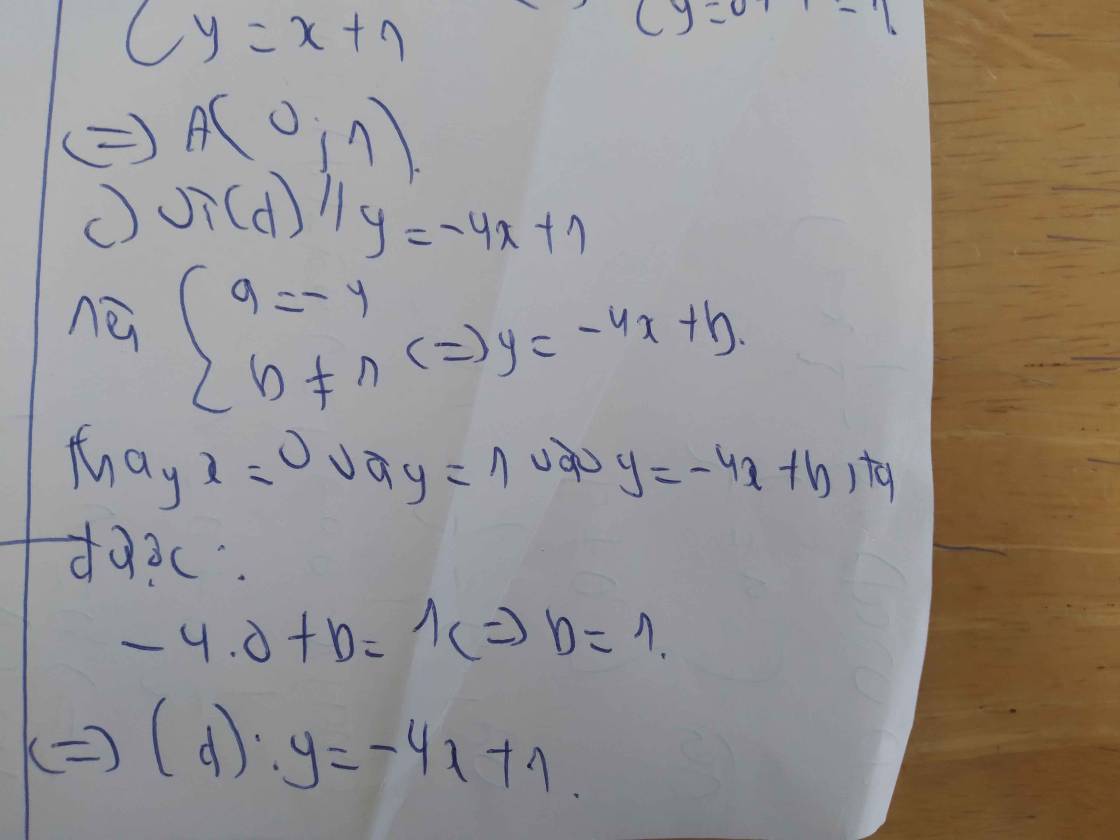 y = x + 1
(y = 0 + 1 = 1.
<=> A(0; 1).
c) Vì (d) // y = -4x + 1
nên { a = -4
b ≠ 1 <=> y = -4x + b.
thay x = 0 và y = 1 vào y = -4x + b, ta
được :
-4.0 + b = 1 <=> b = 1.
<=> (d): y = -4x + 1.